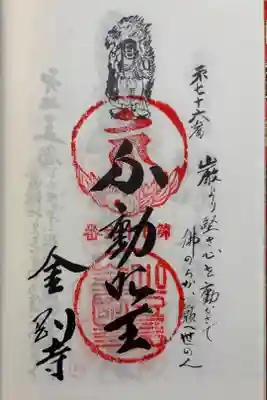 第七十六番
巌より堅き心を動かさで
佛のちか
世の人
不動明王
金剛寺